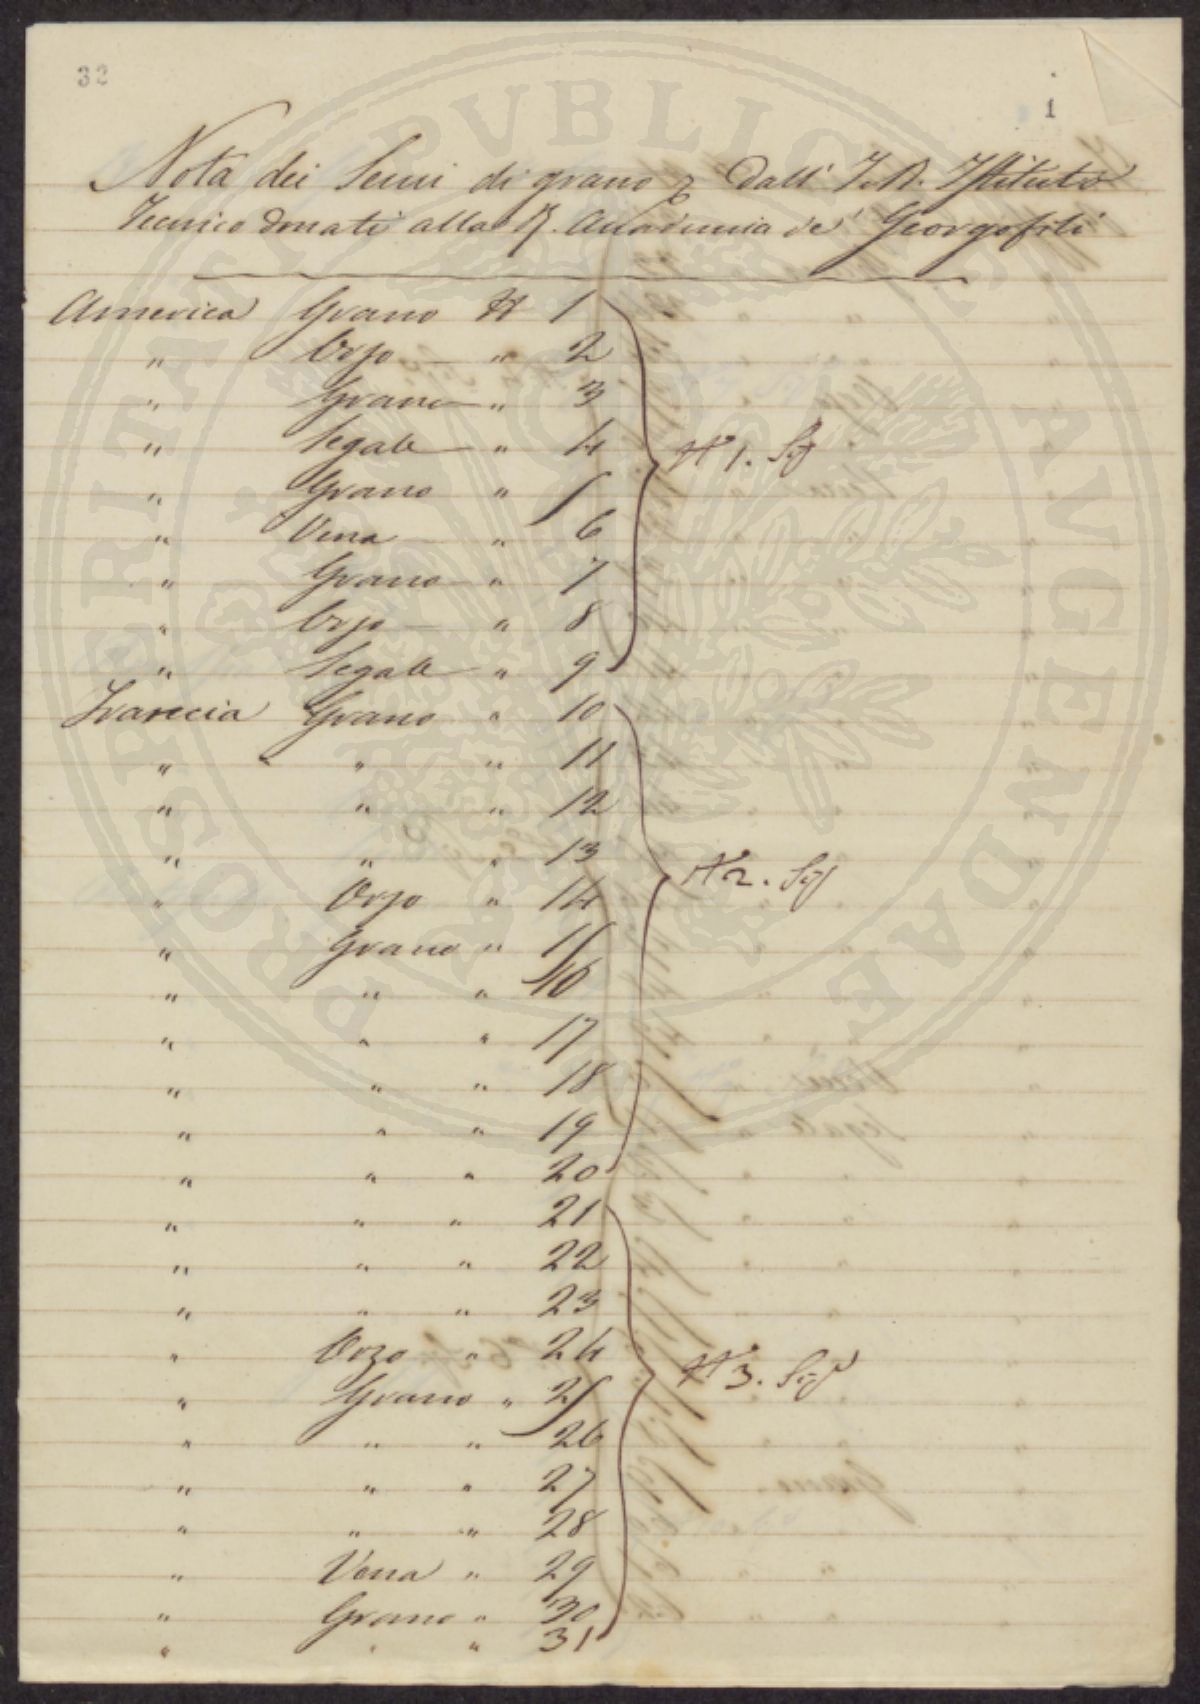 32
1
Nota dei Semi di grano dall' I. R. Istituto
Tecnico donati alla R. Accademia de' Georgofili
America Grano N 1
" Orzo " 2
" Grano " 3
" Segale " 4
" Grano " 5
" Vena " 6
" Grano " 7
" Orzo " 8
" Segale " 9
N° 1.
Francia Grano " 10
" " " 11
" " " 12
" " " 13
" Orzo " 14
" Grano " 15
" " " 16
" " " 17
" " " 18
" " " 19
" " " 20
N° 2.
" " " 21
" " " 22
" " " 23
" Orzo " 24
" Grano " 25
" " " 26
" " " 27
" " " 28
" Vena " 29
" Grano " 30
" " " 31
N° 3.
PROSPERITATI PVBLICAE AVGENDAE